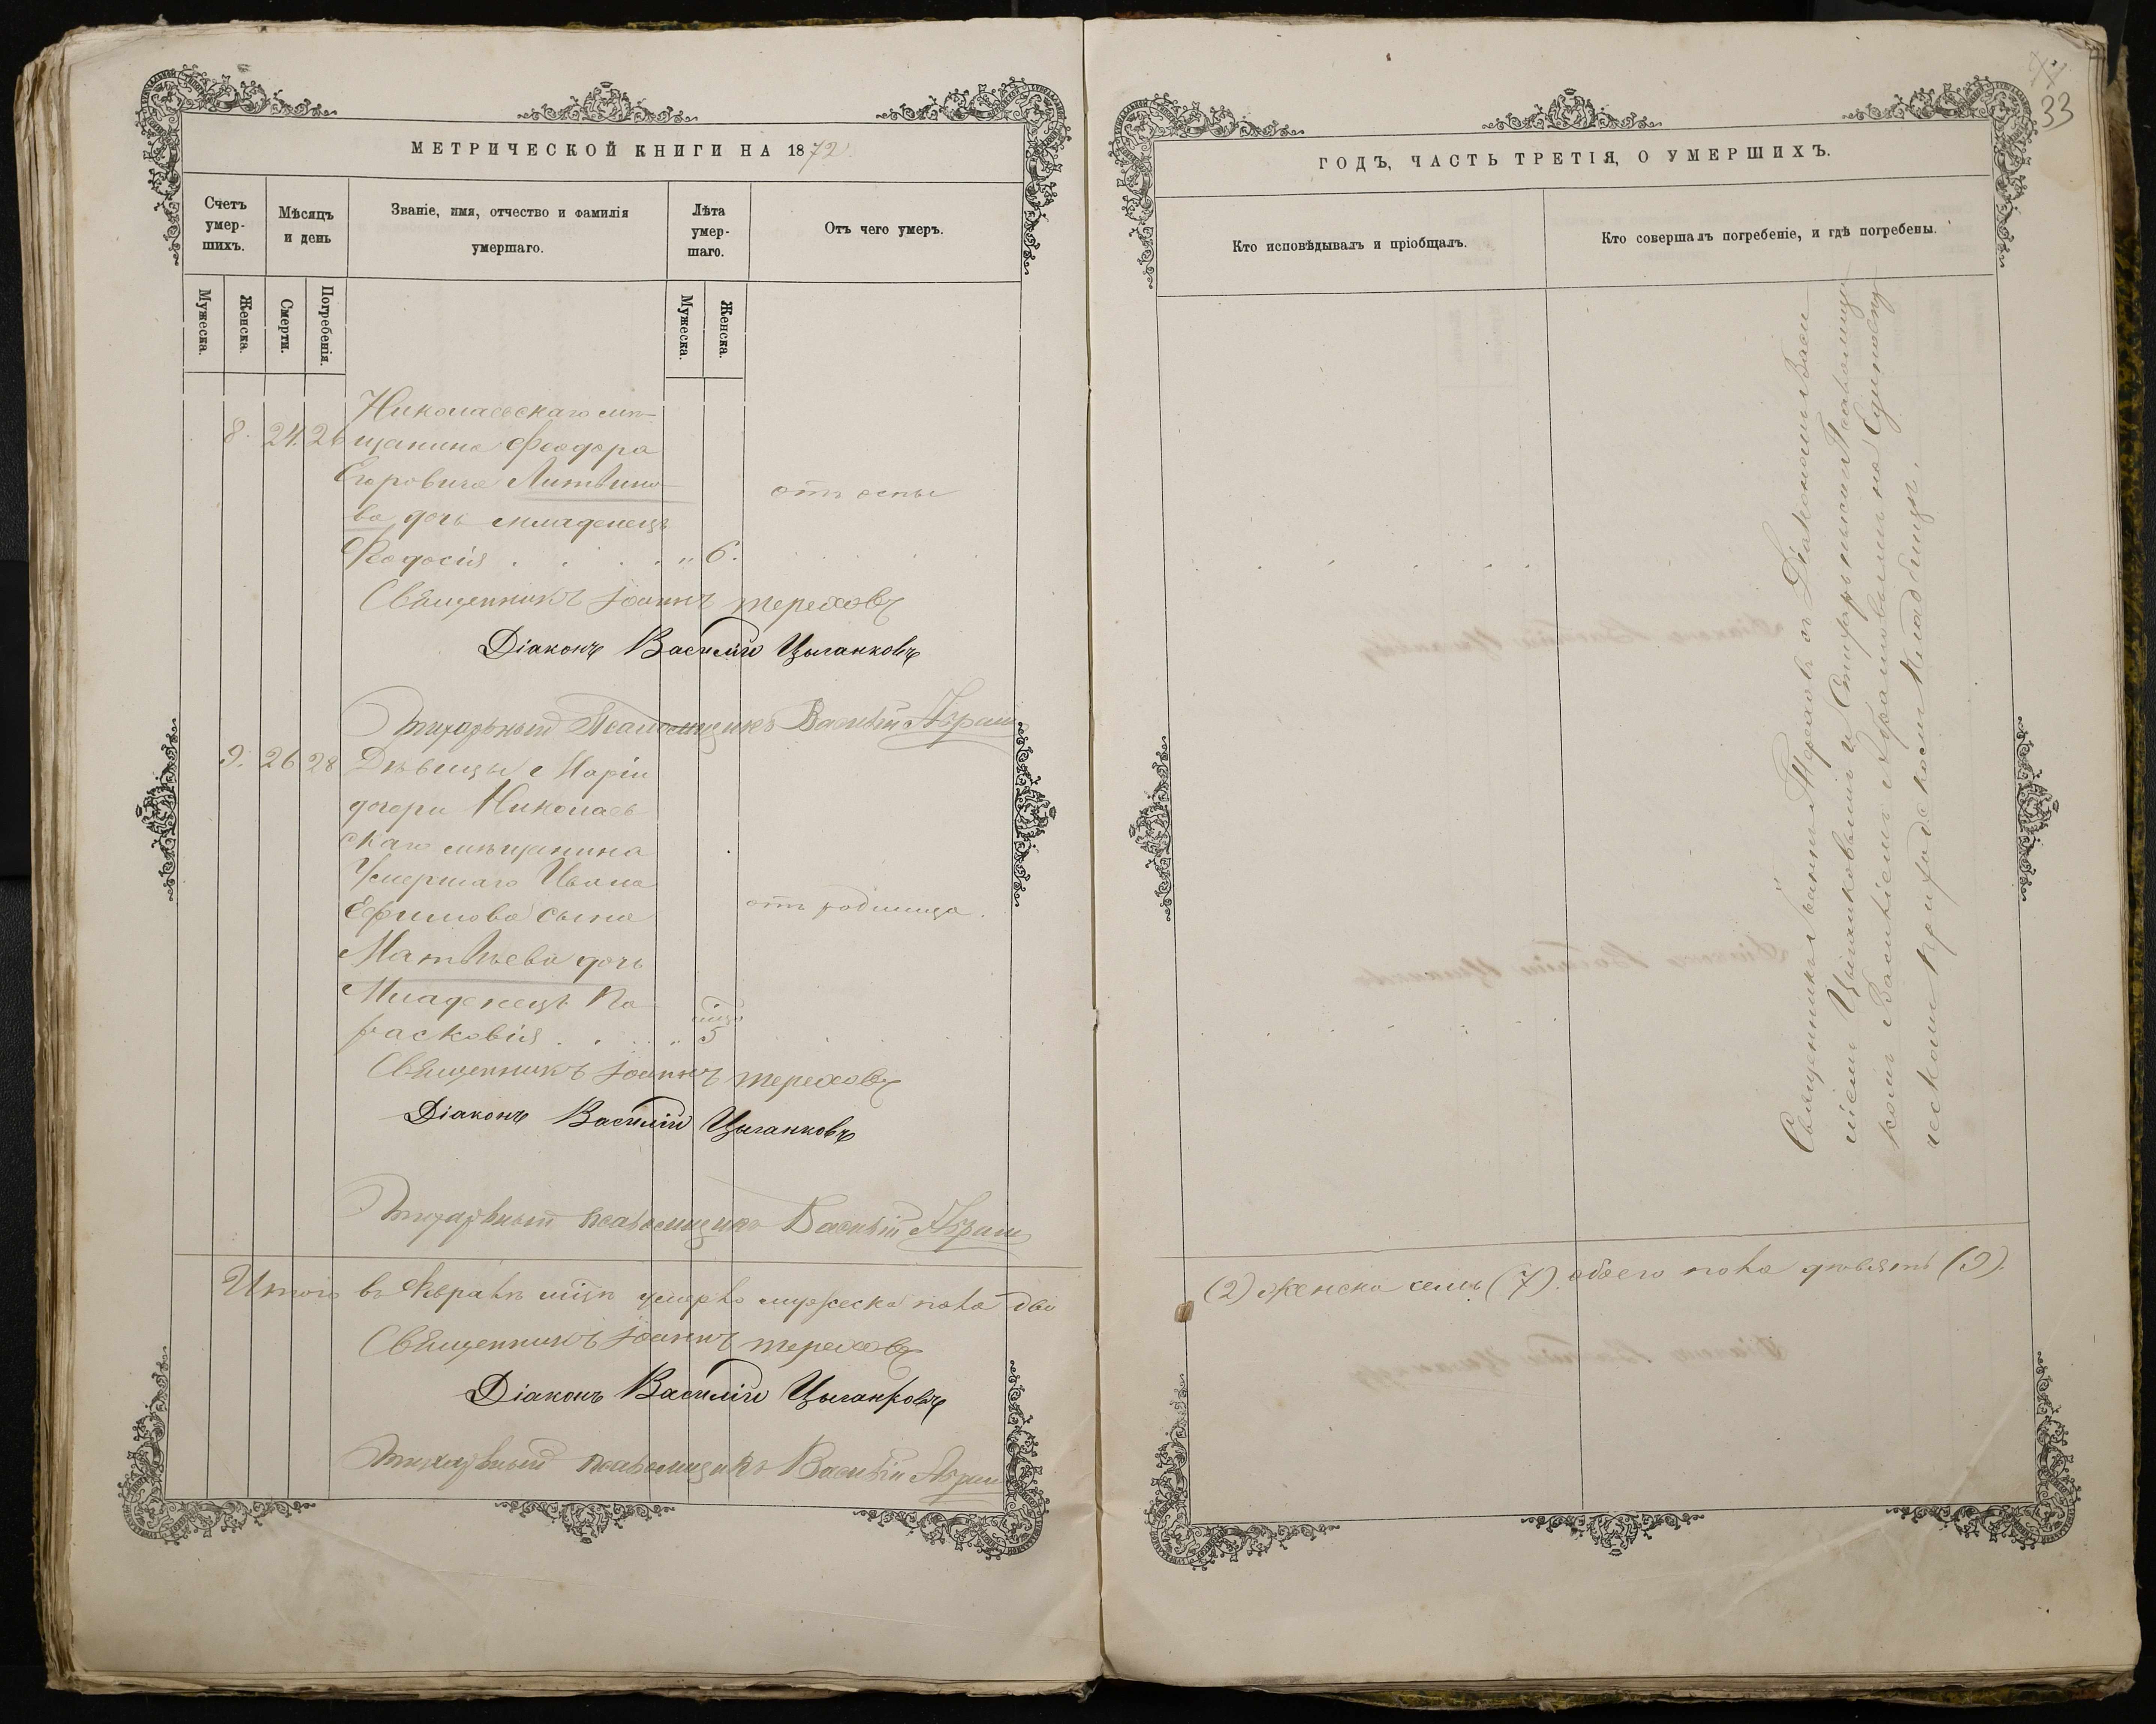 МЕТРИЧЕСКОЙ КНИГИ НА 1872
Счетъ умер-шихъ.
Мѣсяцъ и день
Званіе, имя, отчество и фамилія умершаго.
Лѣта умер-шаго.
Отъ чего умеръ.
Мужеска.
Женска.
Смерти.
Погребенія.
Мужеска.
Женска.
Николаевскаго мѣ-
8. 24. 26 щанина Феодора
Егоровича Литвино-
ва дочь младенецъ
отъ оспы
Феодосія . . . . " 6.
Священникъ Іоаннъ Тереховъ
Діаконъ Василій Цыганковъ
Псаломщикъ Василій
9. 26 28 Дѣвицы Маріи
дочери Николаев-
скаго мѣщанина
Умершаго Ивана
Ефимова сына
отъ родимца.
Матвѣева дочь
Младенецъ Па-
расковія . . . . " 5
Священникъ Іоаннъ Тереховъ
Діаконъ Василій Цыганковъ
псаломщикъ Василій
Итого въ Февралѣ мѣцѣ умерло мужеска пола два
Священникъ Іоаннъ Тереховъ
Діаконъ Василій Цыганковъ
псаломщикъ Василій
33
ГОДЪ, ЧАСТЬ ТРЕТІЯ, О УМЕРШИХЪ.
Кто исповѣдывалъ и пріобщалъ.
Кто совершалъ погребеніе, и гдѣ погребены.
Священникъ Іоаннъ Тереховъ съ Діакономъ Васи
ліемъ Цыганковымъ и Псаломщи
комъ Василіемъ на Единовѣр
ческомъ приходскомъ кладбищѣ.
(2) женска семь (7). обоего пола девять (9).